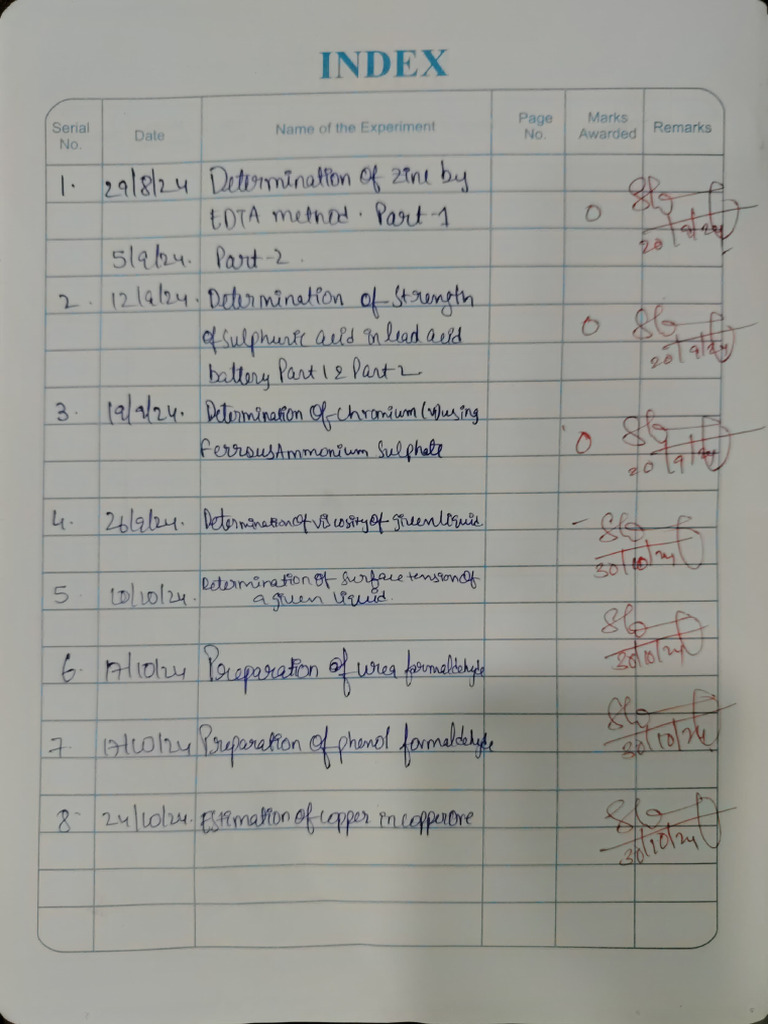 INDEX
Serial No. Date Name of the Experiment Page No. Marks Awarded Remarks
1. 29/8/24 Determination of zinc by
EDTA method. Part-1 0
20/9/24
5/9/24. Part-2.
2. 12/9/24. Determination of Strength
of sulphuric acid in lead acid 0
20/9/24
battery Part 1 & Part 2
3. 19/9/24. Determination of chromium (vi) using
ferrous Ammonium Sulphate 0
20/9/24
4. 26/9/24. Determination of viscosity of given liquid -
30/10/24
5 10/10/24. Determination of surface tension of
a given liquid.
30/10/24
6. 17/10/24 Preparation of urea formaldehyde
30/10/24
7. 17/10/24 Preparation of phenol formaldehyde
30/10/24
8 24/10/24. Estimation of copper in copper ore
30/10/24